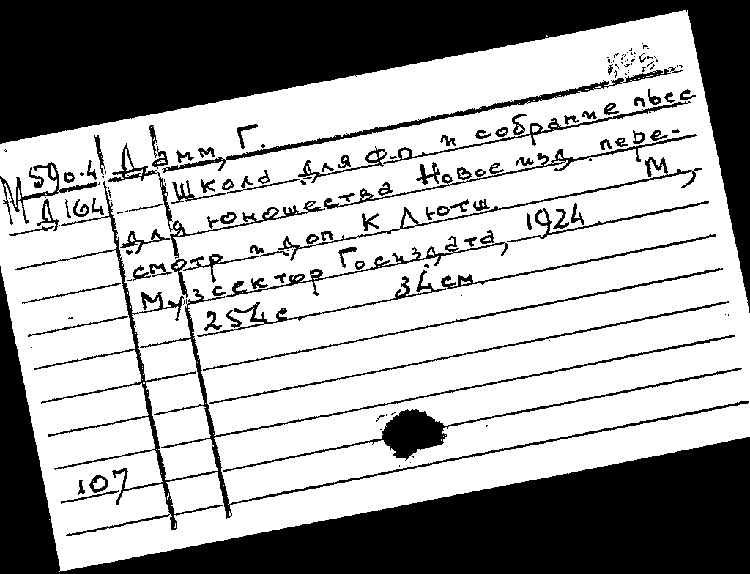 М 590.4 Дамм, Г.
Д 164 Школа для ф.п. и собрание пьес
для юношества Новое изд. пере-
смотр и доп. К Лютш. М.,
Музсектор Госиздата, 1924.
254с. 34см.
107